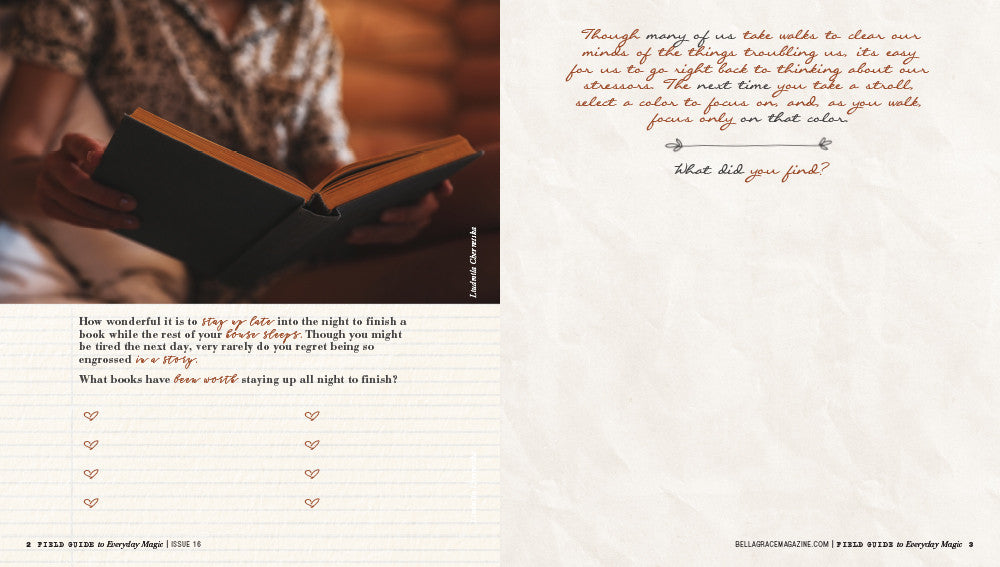 Liudmila Chernetska
How wonderful it is to stay up late into the night to finish a
book while the rest of your house sleeps. Though you might
be tired the next day, very rarely do you regret being so
engrossed in a story.
What books have been worth staying up all night to finish?
2 FIELD GUIDE to Everyday Magic | ISSUE 16
Though many of us take walks to clear our
minds of the things troubling us, it's easy
for us to go right back to thinking about our
stressors. The next time you take a stroll,
select a color to focus on, and, as you walk,
focus only on that color.
What did you find?
BELLAGRACEMAGAZINE.COM | FIELD GUIDE to Everyday Magic 3